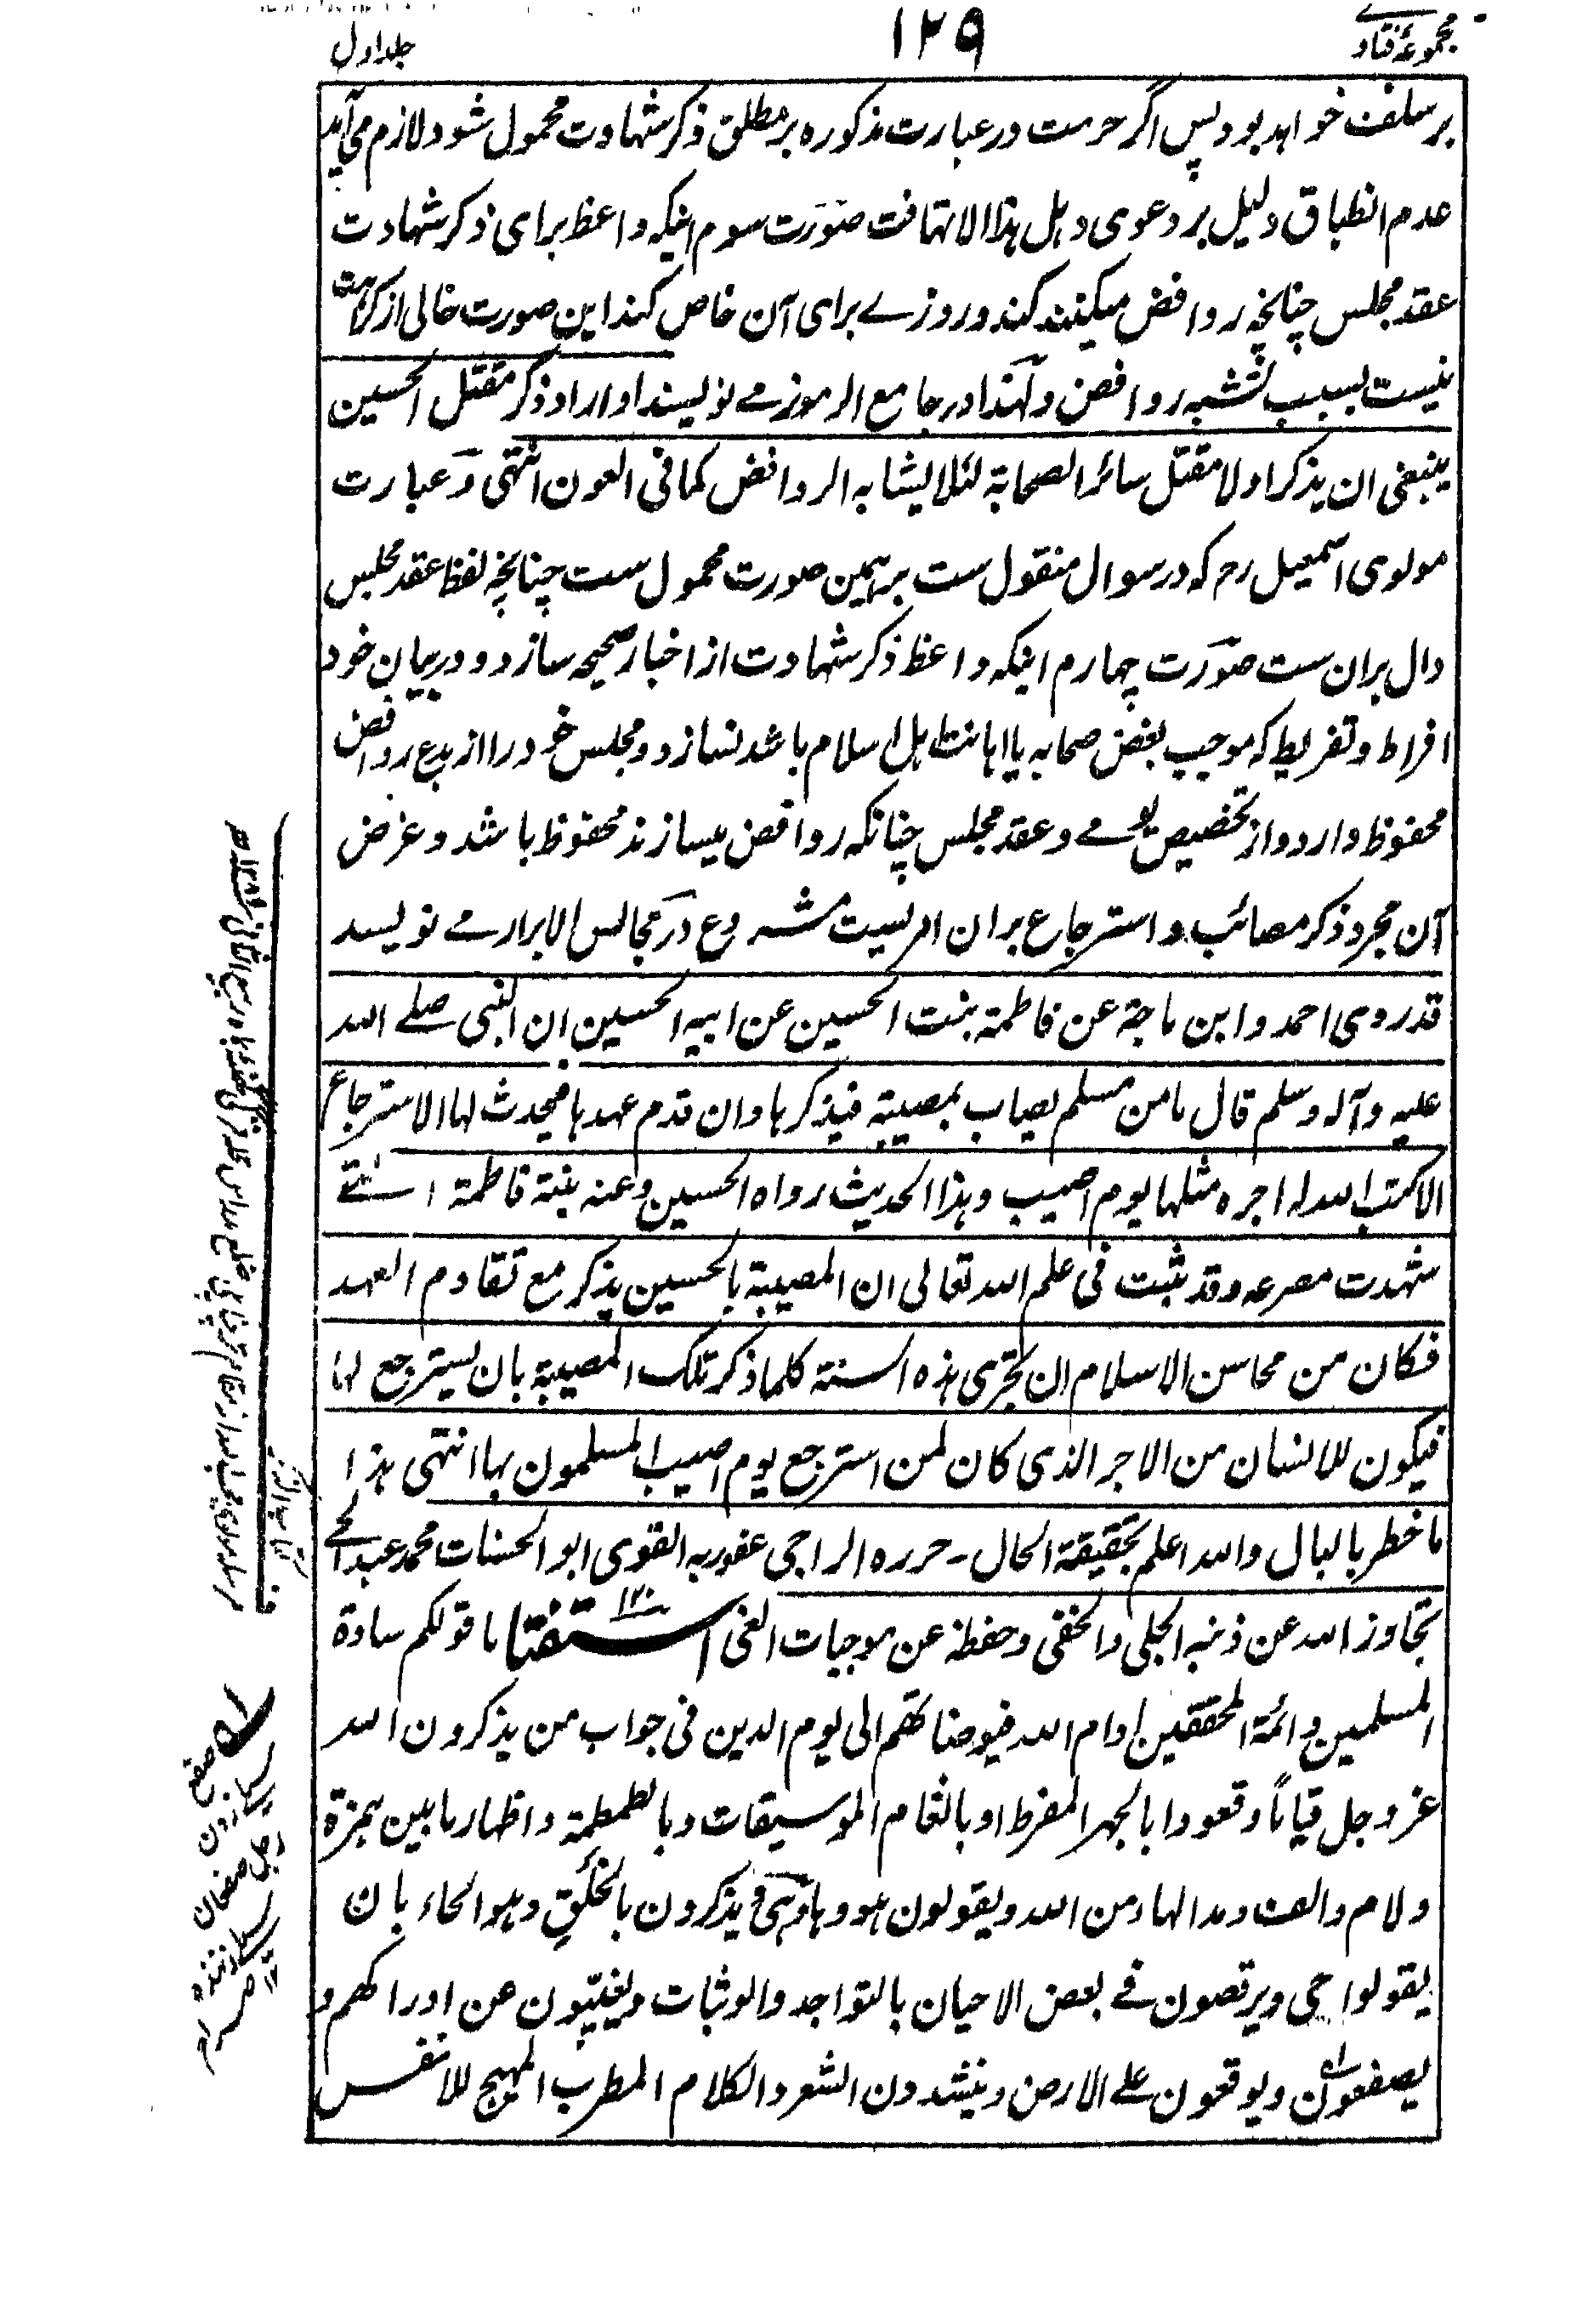 مجموعۂ فتاوے
۱۲۹
جلد اول
بر سلف خواهد بود پس اگر حرمت در عبارت مذکوره بر مطلق ذکر شهادت محمول شود لازم می آید
عدم انطباق دلیل بر دعوی و هل هذا الا تهافت صورت سوم اینکه واعظ برای ذکر شهادت
عقد مجلس چنانچه روافض میکنند کند و روزے برای آن خاص کند این صورت خالی از کراهت
نیست بسبب تشبه روافض ولهذا در جامع الرموز مے نویسند اوار اد ذکر مقتل الحسین
ینبغی ان یذکر اولا مقتل سائر الصحابة لئلا یشابه الروافض کما فی العون انتهی و عبارت
مولوی اسمعیل رح که در سوال منقول ست بر همین صورت محمول ست چنانچه لفظ عقد مجلس
دال بران ست صورت چهارم اینکه واعظ ذکر شهادت از اخبار صحیحه سازد و در بیان خود
افراط و تفریط که موجب بغض صحابه یا اهانت اهل اسلام باشد نسازد و مجلس خود را از بدع روافض
محفوظ دارد و از تخصیص یومے و عقد مجلس چنانکه روافض میسازند محفوظ باشد و غرض
آن مجرد ذکر مصائب و استرجاع بران امریست مشروع در مجالس الابرار مے نویسد
قد روی احمد وابن ماجة عن فاطمة بنت الحسین عن ابیه الحسین ان النبی صلے الله
علیه وآله وسلم قال ما من مسلم یصاب بمصیبة فیذکرها وان قدم عهدها فیحدث لها الاسترجاع
الا کتب الله له اجره مثلها یوم اصیب وهذا الحدیث رواه الحسین وعنه بنته فاطمة التے
شهدت مصرعه وقد ثبت فی علم الله تعالی ان المصیبة بالحسین یذکر مع تقادم العهد
فکان من محاسن الاسلام ان تجری هذه السنة کلما ذکر تلک المصیبة بان یسترجع لها
فیکون للانسان من الاجر الذی کان لمن استرجع یوم اصیب المسلمون بها انتهی هذا
ما خطر بالبال والله اعلم بحقیقة الحال - حرره الراجی عفو ربه القوی ابو الحسنات محمد عبد الحے
تجاوز الله عن ذنبه الجلی والخفی وحفظه عن موجبات الغی استفتا ۱۲۰ ما قولکم سادة
المسلمین وائمة المحققین ادام الله فیوضاتهم الی یوم الدین فی جواب من یذکرون الله
عز وجل قیاماً وقعودا بالجهر المفرط او بالنغام الموسیقات وبالطمطمة واظهار ما بین همزة
ولام والف ومد الهاء من الله ویقولون هو وها وهی ویذکرون بالحلق وهو الحاء بان
یقولوا حی ویرقصون فے بعض الاحیان بالتواجد والوثبات ویغیبون عن ادراکهم و
یصفعون ویوقعون علے الارض وینشدون الشعر والکلام المطرب المهیج للانفس